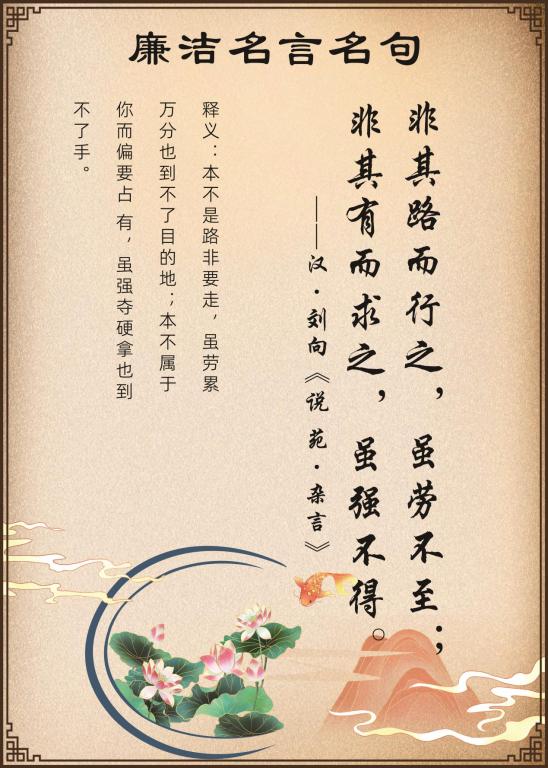 廉洁名言名句
非其路而行之，虽劳不至；
非其有而求之，虽强不得。
——汉·刘向《说苑·杂言》
释义：本不是路非要走，虽劳累
万分也到不了目的地；本不属于
你而偏要占 有，虽强夺硬拿也到
不了手。